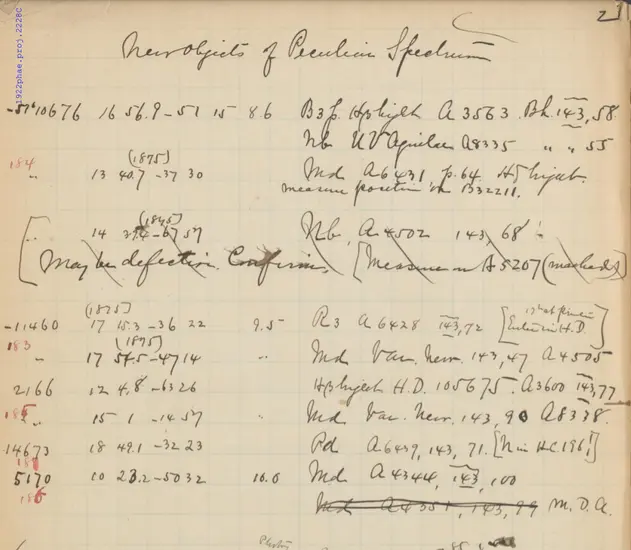 1922phae.proj.2228C
2
New Objects of Peculiar Spectrum
-51°10676 16 56.9 -51 15 8.6 B3p. Hβ bright A 3563. Bk. 143, 58.
Nb UV Aquilae A8335 " " 55
184
" (1875) 13 40.7 -37 30 Md A6431 p.64. Hζ bright.
measure position on B32211.
" (1875) 14 -67 57 Nb, A 4502 143, 68
[May be defection. Confirm. [Measure on A5207 (marked)]
-11460 (1875) 17 15.3 -36 22 9.5 R3 A 6428 143, 72 [Enter in H.D.]
183
" (1875) 17 54.5 -47 14 " Md Var. New. 143, 47 A4505
2166 12 4.8 -63 26 Hβ bright H.D. 105675. A3600 143, 77
185
" 15 1 -14 57 " Md Var. New. 143, 90 A8338.
14673 18 49.1 -32 23 Pd A6439, 143, 71. [N in H.C. 196]
5170 10 23.2 -50 32 10.0 Md A 4344, 143, 100
186
Md A4351, 143, 99 M. D. A.